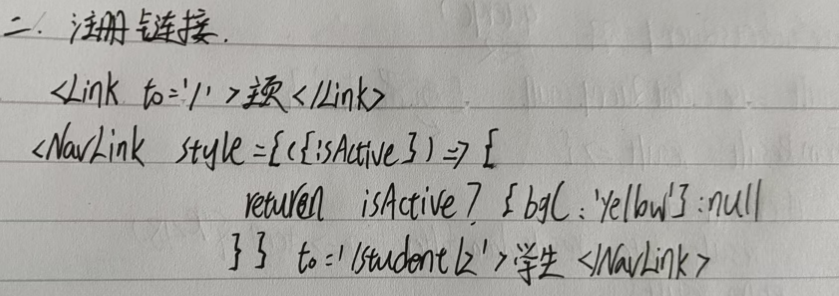 二. 注册与链接.
<Link to='/'>主页</Link>
<NavLink style={({isActive})=>{
return isActive? {bgC:'yellow'}:null
}} to='/student/2'>学生</NavLink>